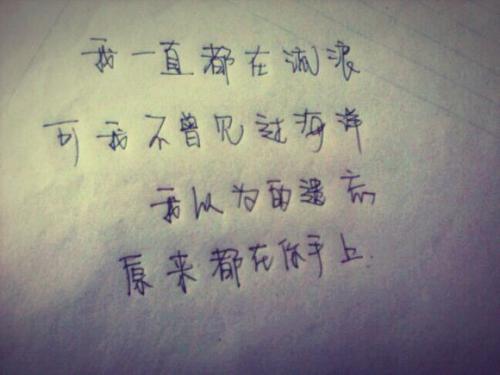 我一直都在流浪
可我不曾见过海洋
我以为的遗忘
原来都在你手上.